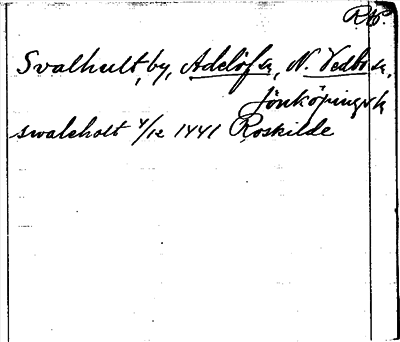 Svalhult, by, Adelöf sn, N. Vedbo hd,
Jönköpings l.
swaleholt 4/12 1441 Roskilde